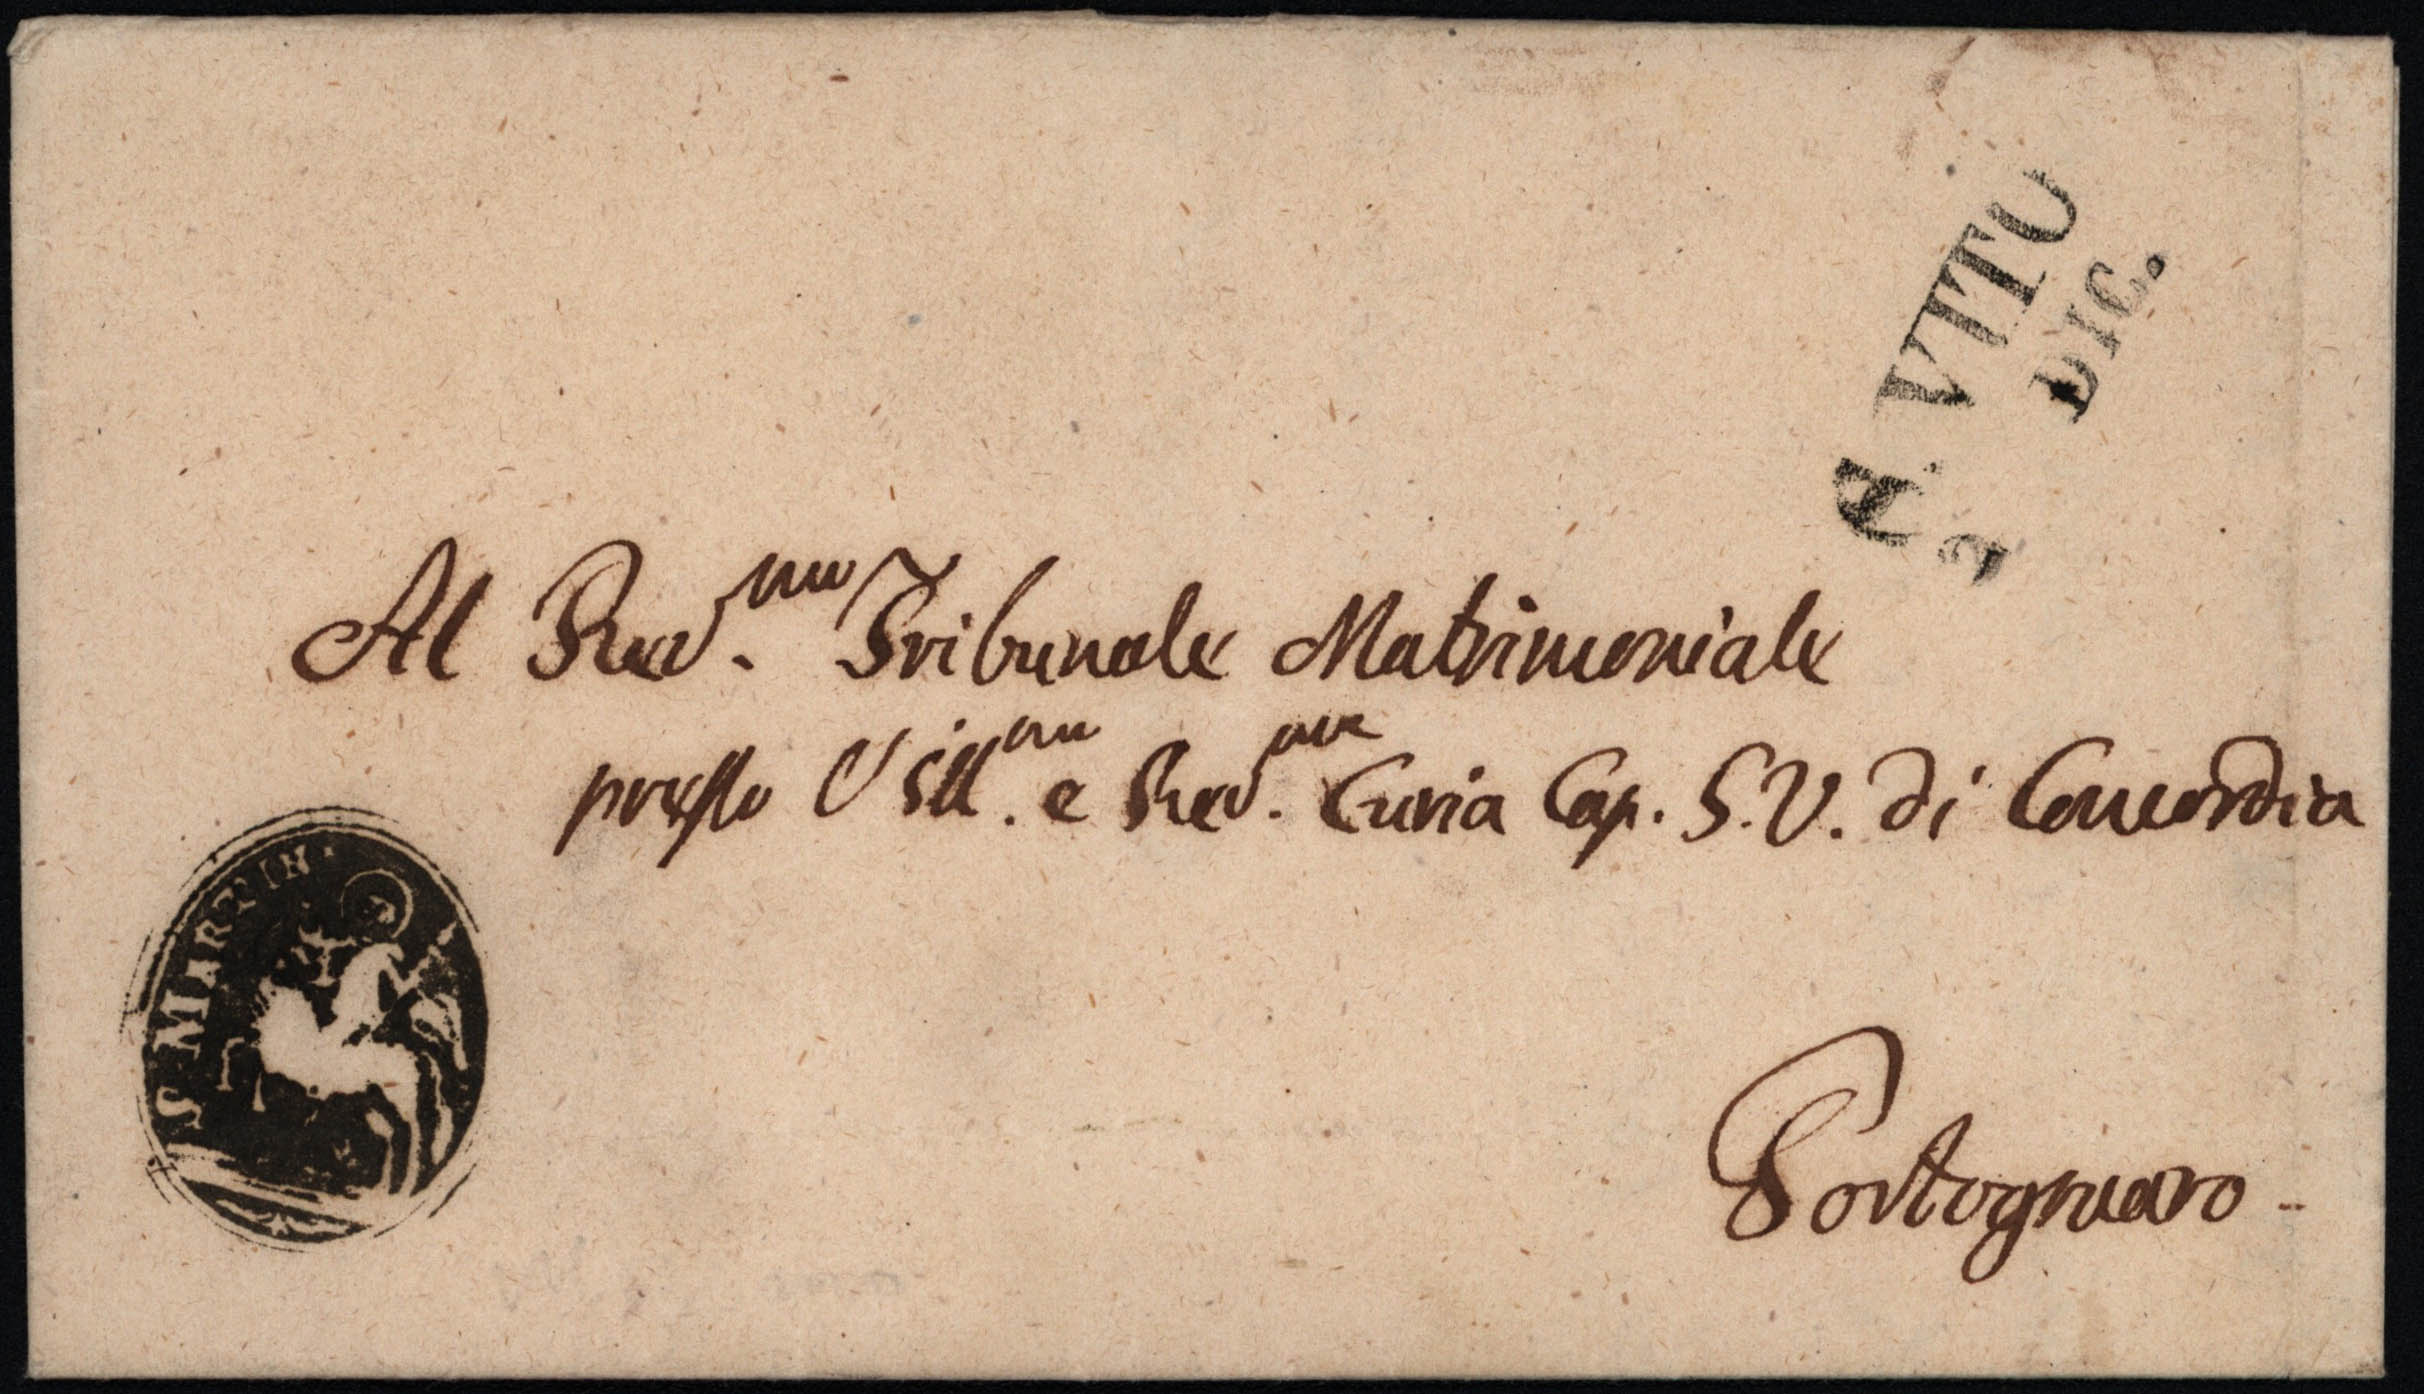 S. VITO
2 DIC.
Al Rev.mo Tribunale Matrimoniale
presso l'Ill.ma e Rev.ma Curia Cap. S. V. di Concordia
S. MARTIN.
Portogruaro